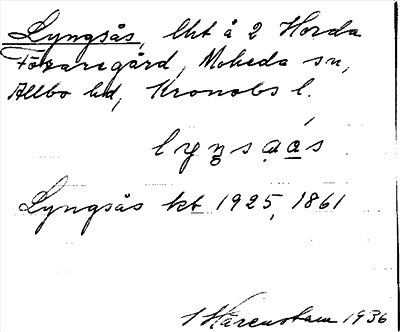 Lyngsås, lht å 2 Horda
Fövaregård, Moheda sn,
Allbo hd, Kronobs l.
lyŋsạạ́s
Lyngsås kt 1925, 1861
Härenstam 1936